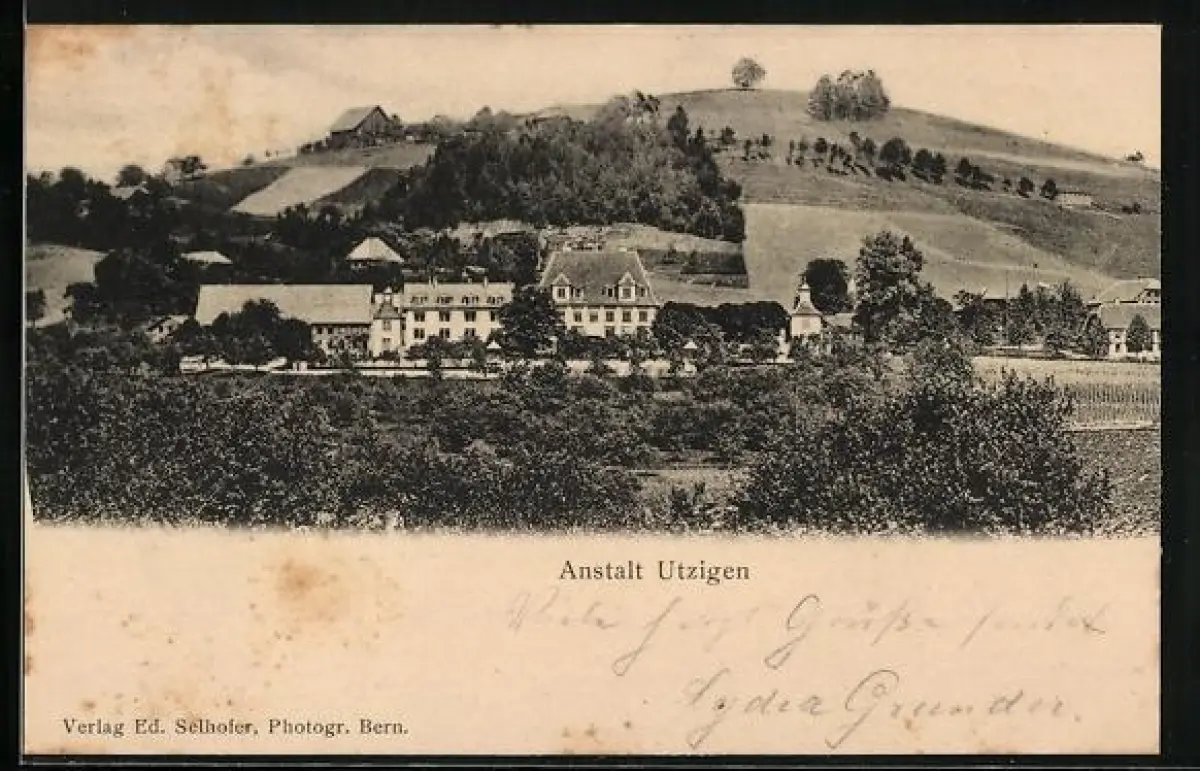 Anstalt Utzigen
Viele herzl Grüße sendet
Lydia Grunder.
Verlag Ed. Selhofer, Photogr. Bern.